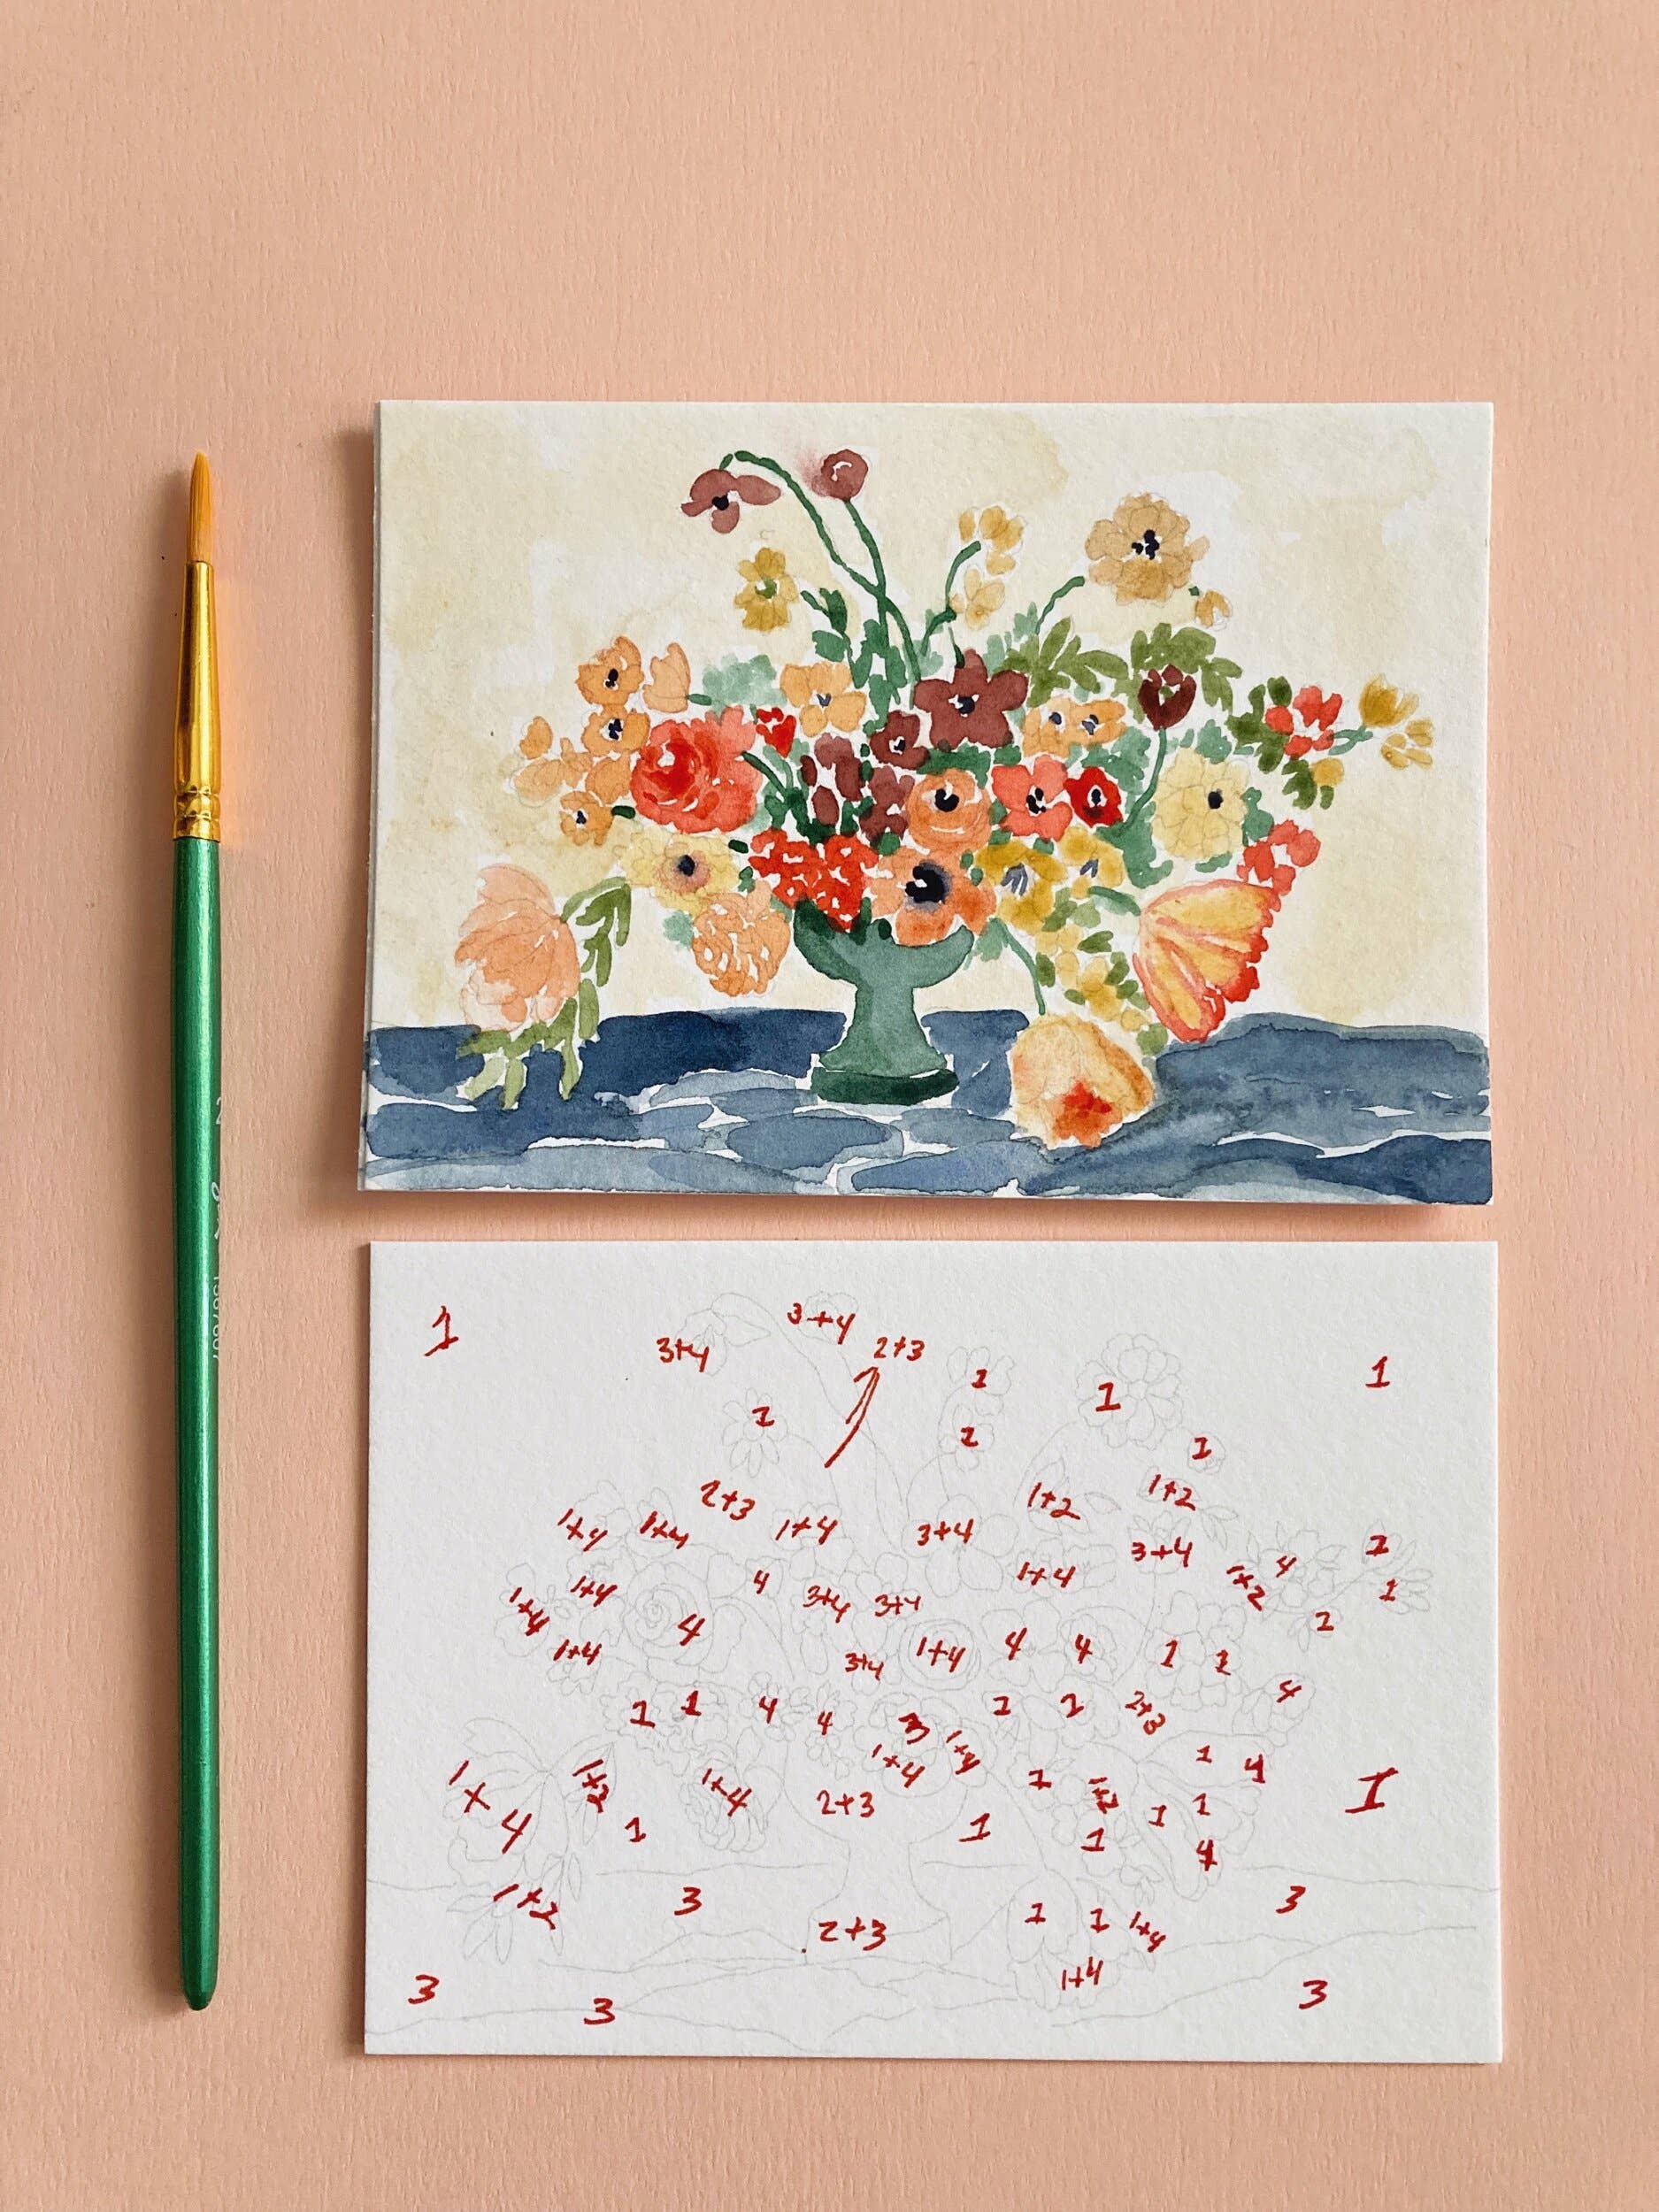 3+4
1
3+4
2+3
1
1
1
1
1
1
1
1+2
1+2
2+3
1+4
1+4
1+4
3+4
3+4
1
1+4
4
1+2
1
4
1+4
3+4
3+4
1+4
2
4
1+4
1+4
3+4
1+4
4
4
1
1
4
1
1
4
4
3
1
1
2+3
1+4
1
4
1+4
1+2
1+4
2+3
1
1
1
1
1
1
1
4
1+2
3
3
2+3
1
1
1+4
1+4
3
3
3